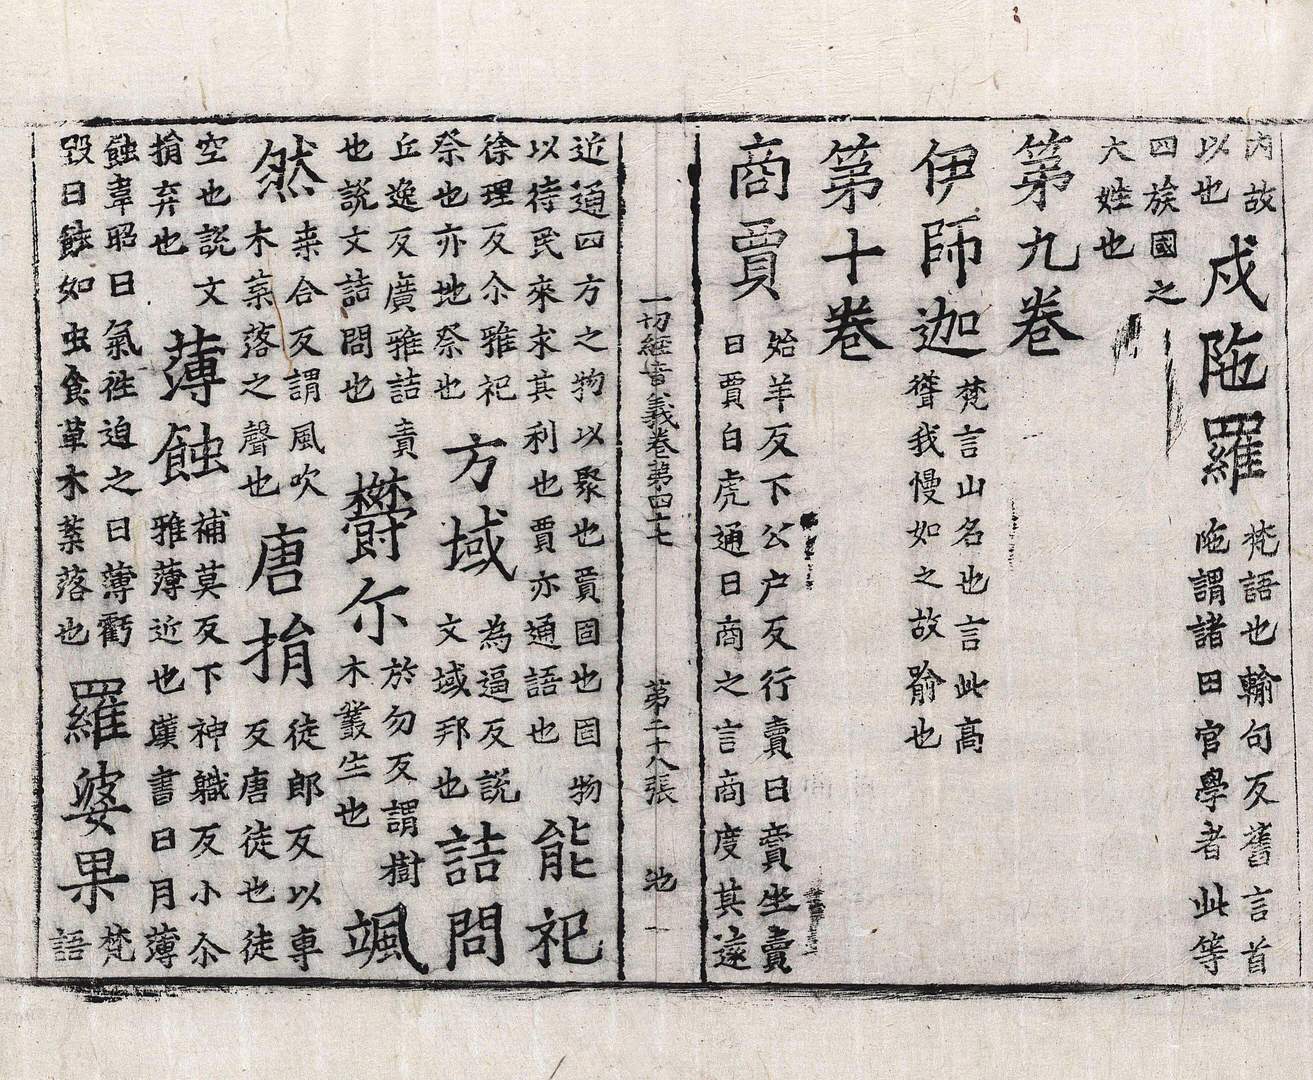 内故
以也
四族國之
大姓也
戍陁羅
梵語也輸句反舊言首
陁謂諸田官學者此等
第九卷
伊師迦
梵言山名也言此高
聳我慢如之故喻也
第十卷
商賈
始羊反下公户反行賣曰賣坐賣
曰賈白虎通曰商之言商度其遠
一切經音義卷第四十七
第二十八張
池
近通四方之物以聚也賈固也固物
以待民來求其利也賈亦通語也
能祀
徐理反尒雅祀
祭也亦地祭也
方域
為逼反說
文域邦也
詰問
丘逸反廣雅詰責
也說文詰問也
欝尒
於勿反謂樹
木叢生也
颯
然
桒合反謂風吹
木葉落之聲也
唐捐
徒郎反以專
反唐徒也徒
空也說文
捐弃也
薄蝕
補莫反下神軄反小尒
雅薄近也漢書日月薄
蝕韋昭曰氣徃迫之曰薄虧
毀曰蝕如虫食草木葉落也
羅婆果
梵
語